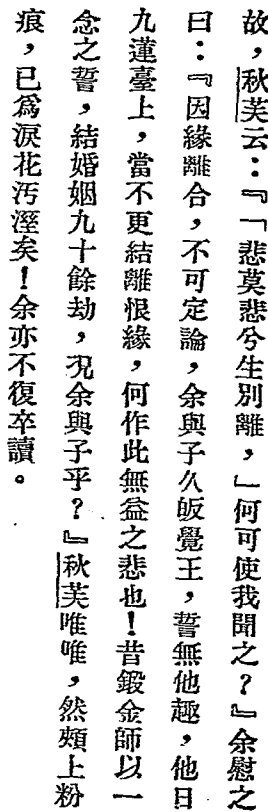 故，秋芙云：『「悲莫悲兮生別離，」何可使我聞之？』余慰之
曰：『因緣離合，不可定論，余與子久皈覺王，誓無他趣，他日
九蓮臺上，當不更結離恨緣，何作此無益之悲也！昔鍛金師以一
念之誓，結婚姻九十餘劫，况余與子乎？』秋芙唯唯，然頰上粉
痕，已爲淚花汚溼矣！余亦不復卒讀。